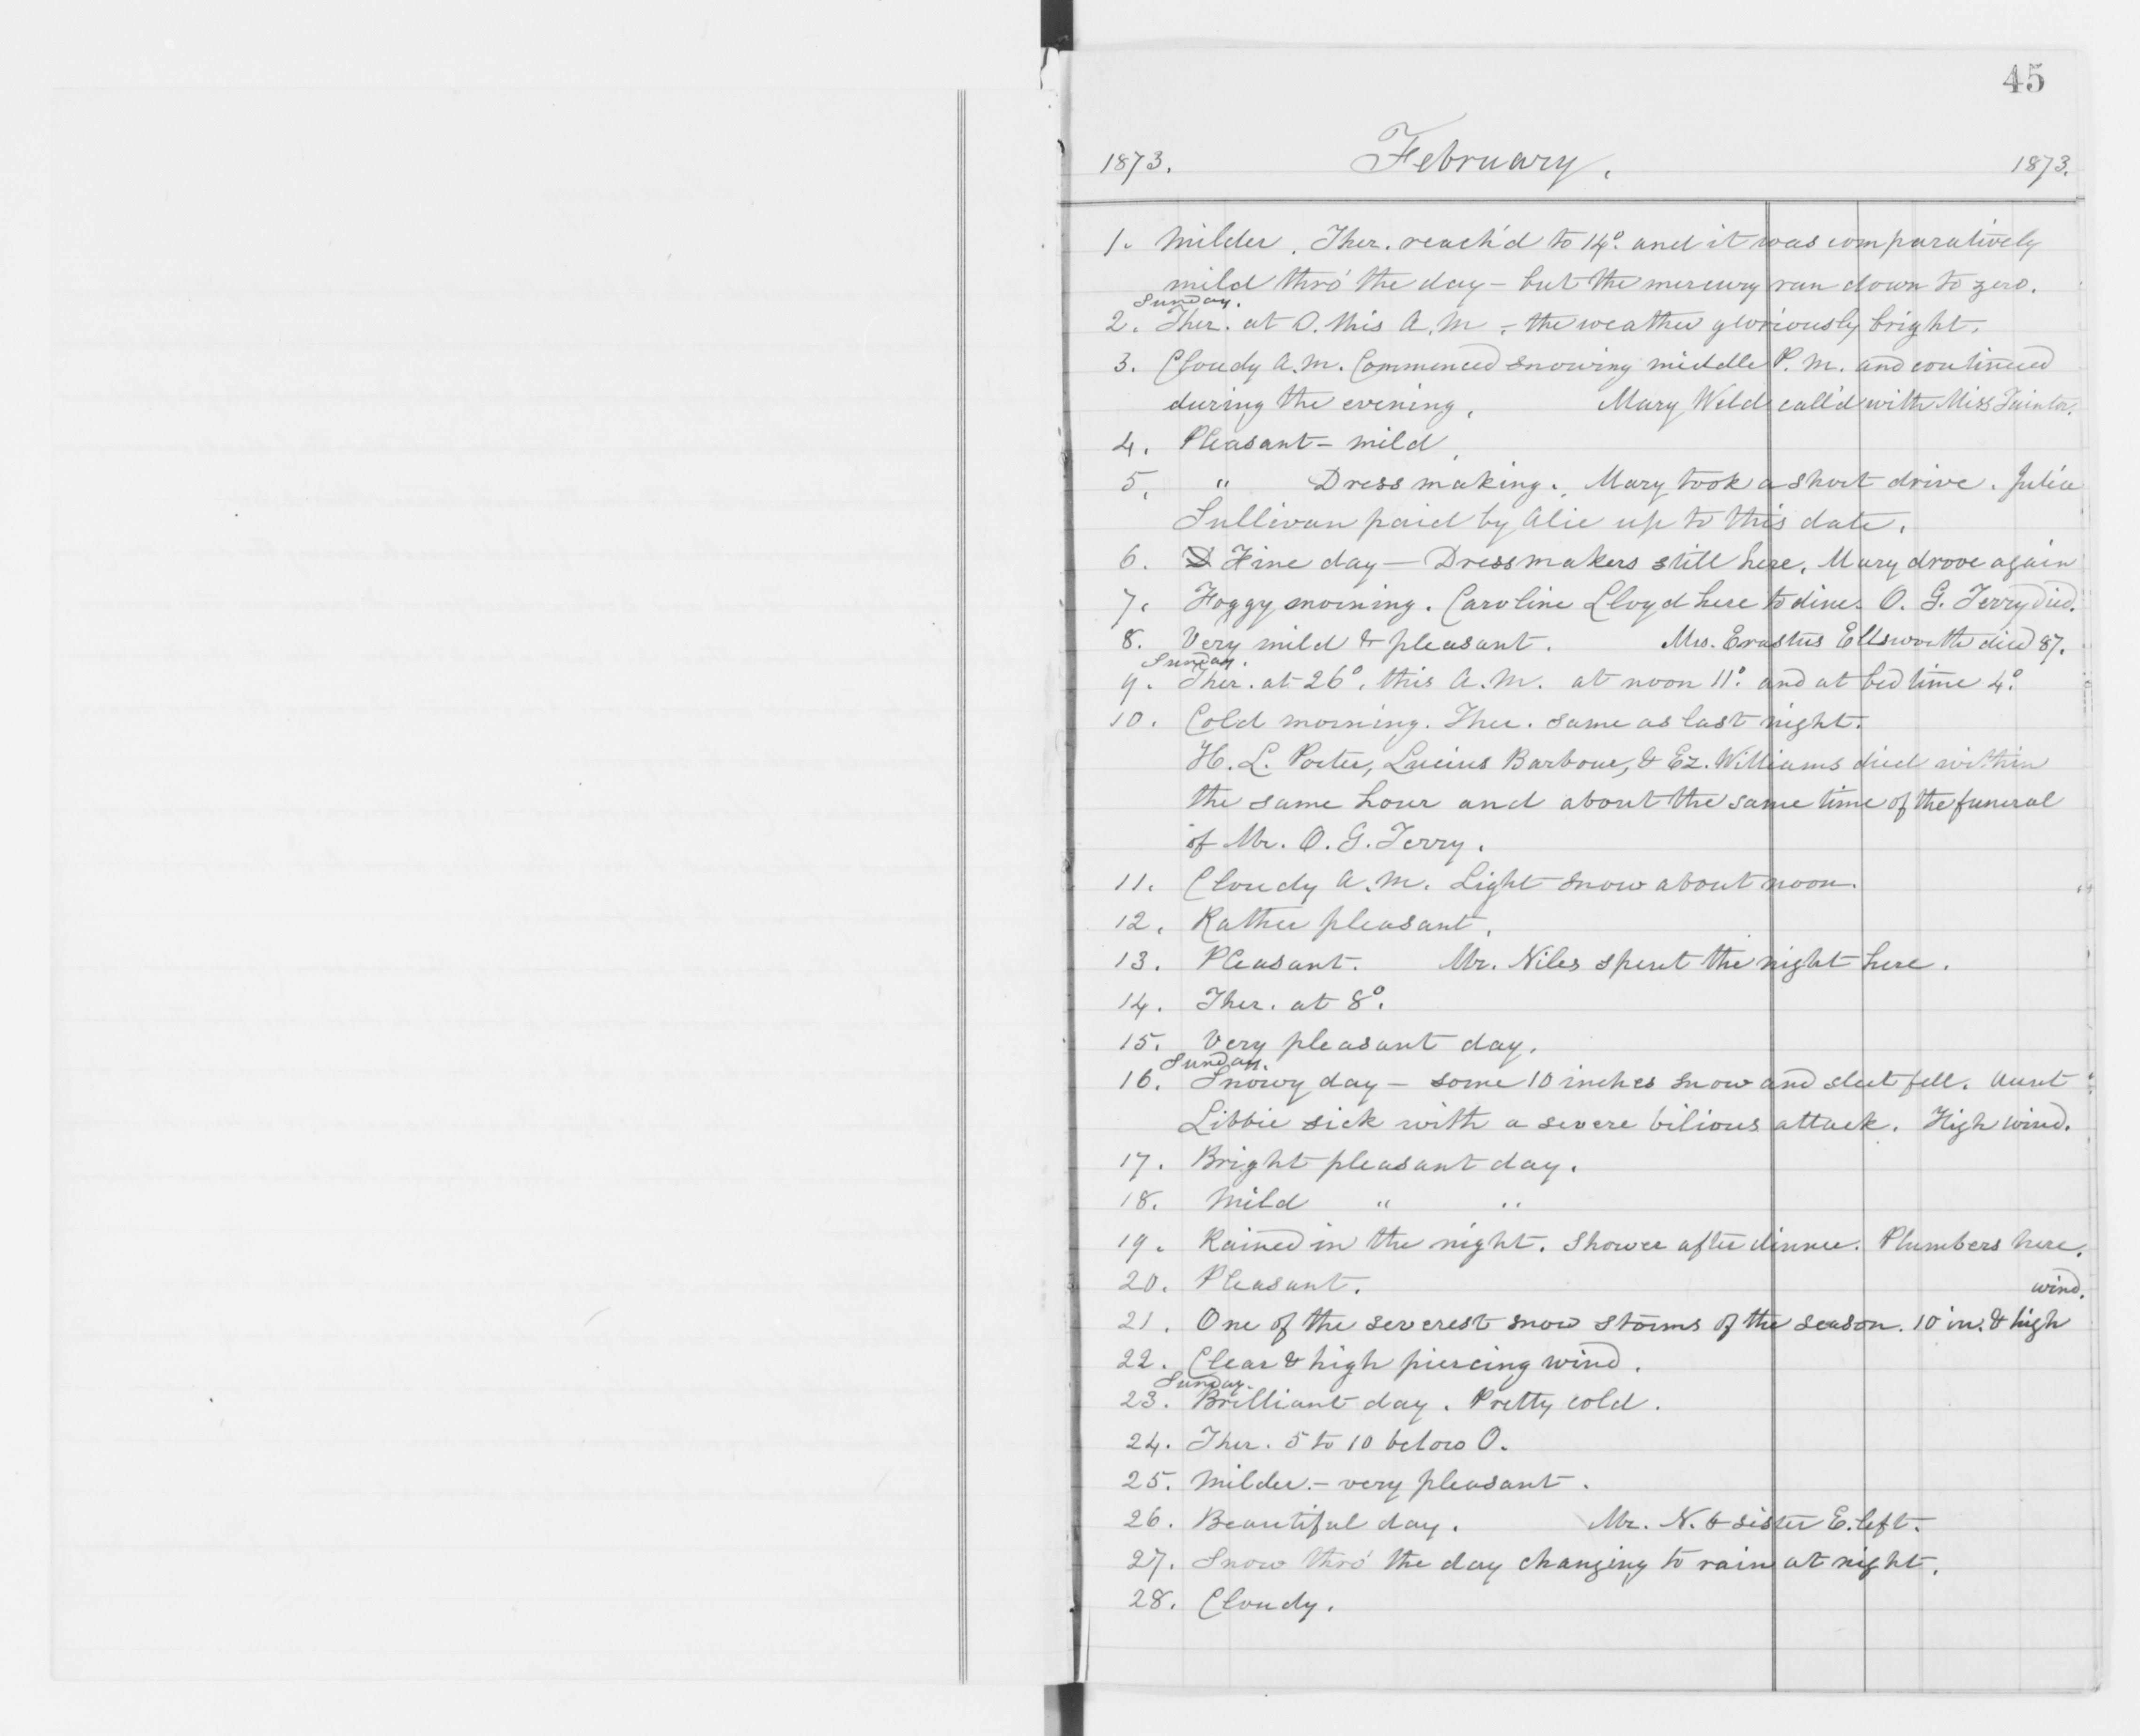 45
1873. February. 1873.
1. Milder. Ther. reach'd to 14° and it was comparatively
mild thro' the day - but the mercury ran down to zero.
Sunday.
2. Ther. at 0. this A.M. - the weather gloriously bright.
3. Cloudy A.M. Commenced snowing middle P.M. and continued
during the evening. Mary Weld call'd with Miss Tainter.
4. Pleasant - mild.
5. " Dress making. Mary took a short drive. Julia
Sullivan paid by Alie up to this date.
6. D Fine day - Dressmakers still here. Mary drove again
7. Foggy morning. Caroline Lloyd here to dine. O. G. Terry died.
8. Very mild & pleasant. Mrs. Erastus Ellsworth died 87.
Sunday.
9. Ther. at 26°. this A.M. at noon 11° and at bed time 4°
10. Cold morning. Ther. same as last night.
H. L. Porter, Lucius Barbour, & Ez. Williams died within
the same hour and about the same time of the funeral
of Mr. O. G. Terry.
11. Cloudy A.M. Light snow about noon.
12. Rather pleasant.
13. Pleasant. Mr. Niles spent the night here.
14. Ther. at 8°.
15. Very pleasant day.
Sunday.
16. Snowy day - some 10 inches snow and sleet fell. Aunt
Libbie sick with a severe bilious attack. High wind.
17. Bright pleasant day.
18. Mild " "
19. Rained in the night. Shower after dinner. Plumbers here.
20. Pleasant. wind.
21. One of the severest snow storms of the season. 10 in. & high
22. Clear & high piercing wind.
Sunday.
23. Brilliant day. Pretty cold.
24. Ther. 5 to 10 below 0.
25. Milder. - very pleasant.
26. Beautiful day. Mr. N. & sister E. left.
27. Snow thro' the day changing to rain at night.
28. Cloudy.